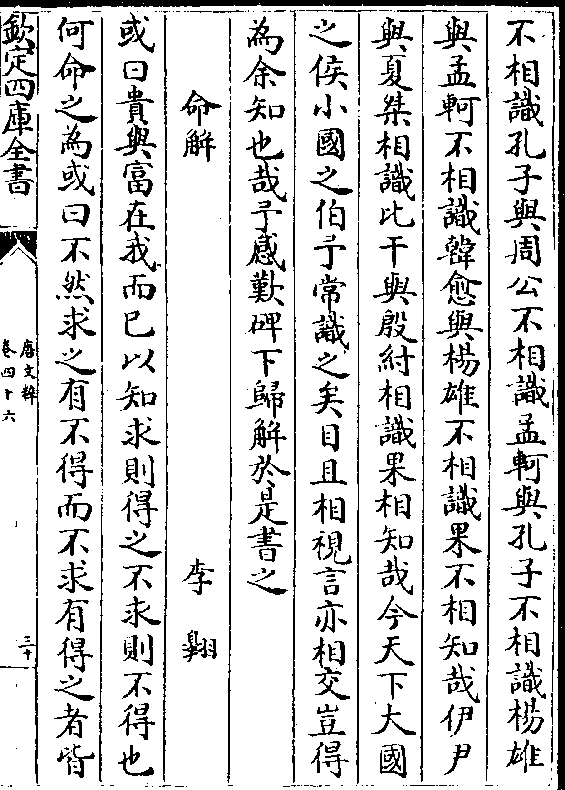 不相識孔子與周公不相識孟軻與孔子不相識楊雄
與孟軻不相識韓愈與楊雄不相識果不相知哉伊尹
與夏桀相識比干與殷紂相識果相知哉今天下大國
之侯小國之伯予常識之矣目且相視言亦相交豈得
為余知也哉予感歎碑下歸解於是書之
命解 李翱
或曰貴與富在我而已以知求則得之不求則不得也
何命之為或曰不然求之有不得而不求有得之者皆
欽定四庫全書
唐文粹
卷四十六
三十